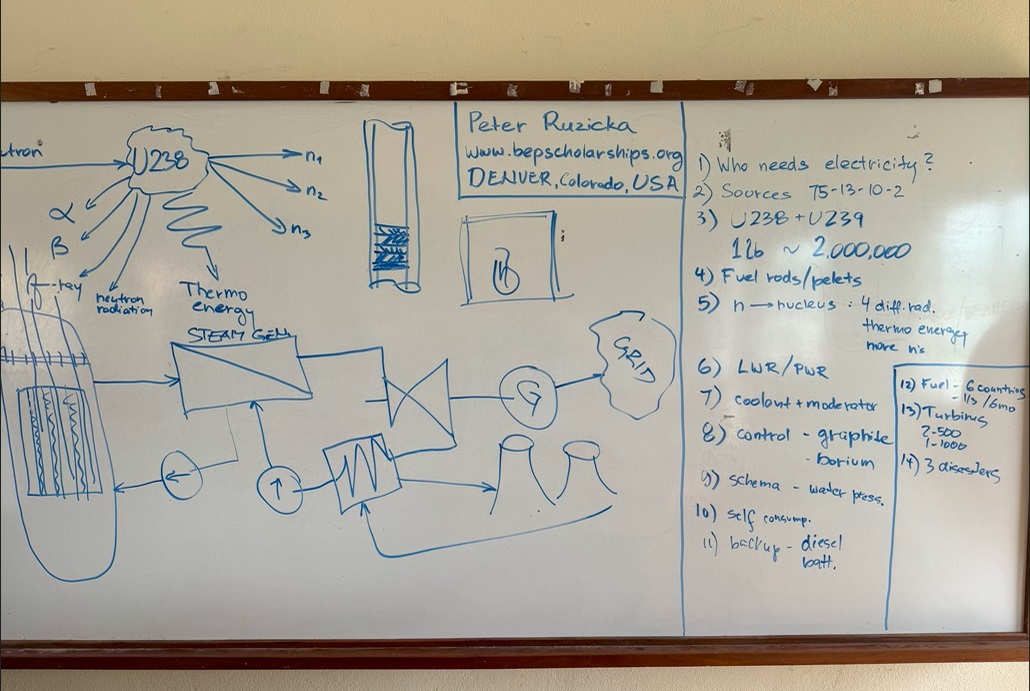 U238
n1
n2
n3
α
β
γ-ray
neutron
radiation
Thermo
energy
Peter Ruzicka
www.bepscholarships.org
DENVER, Colorado, USA
STEAM GEN.
G
GRID
1) Who needs electricity?
2) Sources 75-13-10-2
3) U238 + U239
1lb ~ 2,000,000
4) Fuel rods/pelets
5) n → nucleus : 4 diff. rad.
thermo energy
more n's
6) LWR/PWR
7) coolant + moderator
8) control - graphite
- borium
9) schema - water press.
10) self consump.
11) backup - diesel
batt.
12) Fuel - 6 countries
- 1/3 /6mo
13) Turbines
2-500
1-1000
14) 3 disasters